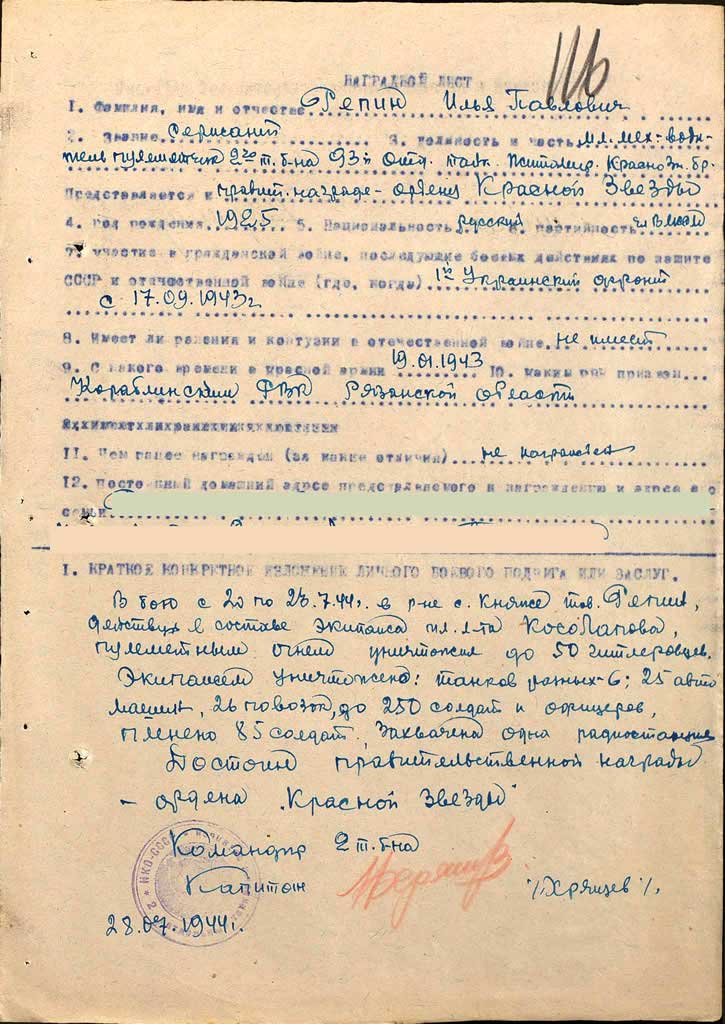 116
НАГРАДНОЙ ЛИСТ
1. Фамилия, имя и отчество Репин Илья Павлович
2. Звание Сержант 3. Должность и часть мл. мех-води-
тель пулеметчик 2го т. б-на 93й Отд. танк. Житомир. Краснозн. бр.
Представляется к правит. награде - ордену Красной Звезды
4. Год рождения 1925 5. Национальность русский 6. партийность чл ВЛКСМ
7. участие в гражданской войне, последующие боевых действиях по защите
СССР и отечественной войне (где, когда) 1й Украинский фронт
с 17.09.1943г
8. Имеет ли ранения и контузии в отечественной войне не имеет
9. С какого времени в красной армии 19.01.1943 10. каким рвк призван
Кораблинским РВК Рязанской области
11. Чем ранее награжден (за какие отличия) не награжден
12. Постоянный домашний адрес представляемого к награждению и адрес его
семьи
1. КРАТКОЕ КОНКРЕТНОЕ ИЗЛОЖЕНИЕ ЛИЧНОГО БОЕВОГО ПОДВИГА ИЛИ ЗАСЛУГ.
В бою с 20 по 23.7.44г. в р-не с. Княже тов. Репин,
действуя в составе экипажа мл. л-та Косолапова,
пулеметным огнем уничтожил до 50 гитлеровцев.
Экипажем уничтожено: танков разных-6; 25 авто
машин, 26 повозок, до 250 солдат и офицеров,
пленено 85 солдат, захвачена одна радиостанция
Достоин правительственной награды
- ордена "Красной Звезды"
Командир 2 т. б-на
Капитан /Хрящев/.
28.07.1944г.